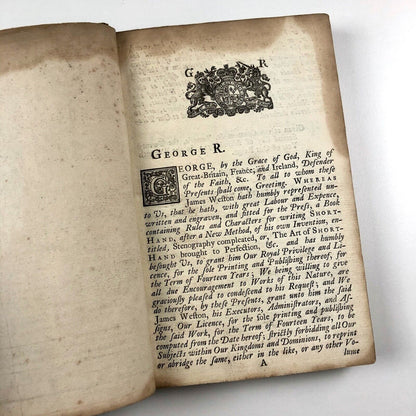 G R
GEORGE R.
GEORGE, by the Grace of God, King of
Great-Britain, France, and Ireland, Defender
of the Faith, &c. To all to whom these
Presents shall come, Greeting. WHEREAS
James Weston hath humbly represented un-
to Us, that he hath, with great Labour and Expence,
written and engraven, and fitted for the Press, a Book
containing Rules and Characters for writing SHORT-
HAND, after a New Method, of his own Invention, en-
titled, Stenography compleated, or, The ART of SHORT-
HAND brought to Perfection, &c. and has humbly
besought Us, to grant him Our Royal Privilege and Li-
cence, for the sole Printing and Publishing thereof, for
the Term of Fourteen Years; We being willing to give
all due Encouragement to Works of this Nature, are
graciously pleased to condescend to his Request; and We
do therefore, by these Presents, grant unto him the said
James Weston, his Executors, Administrators, and As-
signs, Our Licence, for the sole printing and publishing
the said Work, for the Term of Fourteen Years, to be
computed from the Date hereof; strictly forbidding all Our
Subjects within Our Kingdoms and Dominions, to reprint
or abridge the same, either in the like, or any other Vo-
A
lume